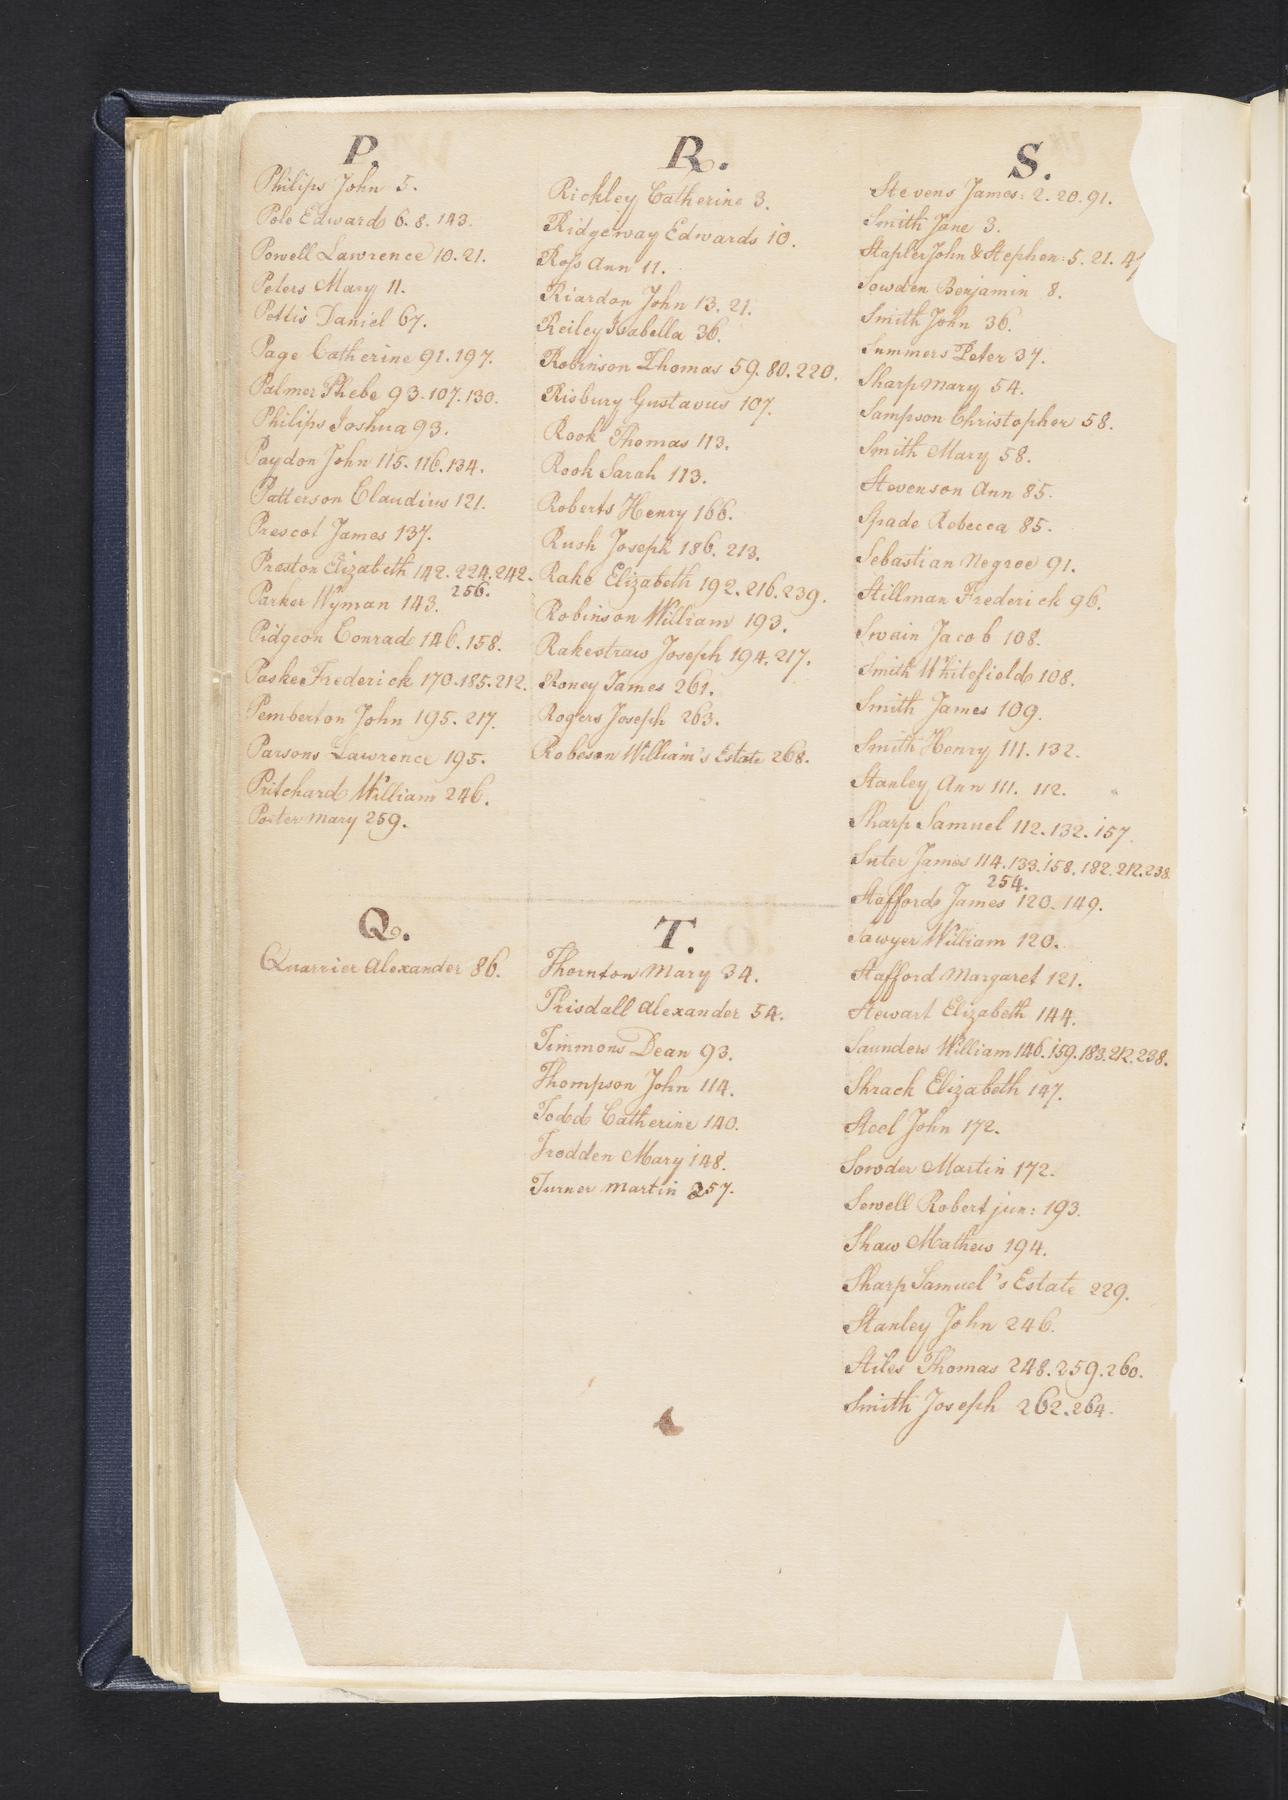 P.
Philips John 5.
Pole Edward 6. 8. 143.
Powell Lawrence 10. 21.
Peters Mary 11.
Pettis Daniel 67.
Page Catherine 91. 197.
Palmer Phebe 93. 107. 130.
Philips Joshua 93.
Paydon John 115. 116. 134.
Patterson Claudius 121.
Prescot James 137.
Preston Elizabeth 142. 224. 242.
256.
Parker Wyman 143.
Pidgeon Conrad 146. 158.
Paskee Frederick 170. 185. 212.
Pemberton John 195. 217.
Parsons Lawrence 195.
Pritchard William 246.
Porter Mary 259.
Q.
Quarrier Alexander 86.
R.
Rickley Catherine 3.
Ridgeway Edwards 10.
Ross Ann 11.
Riardon John 13. 21.
Reiley Isabella 36.
Robinson Thomas 59. 80. 220.
Risbury Gustavus 107.
Rook Thomas 113.
Rook Sarah 113.
Roberts Henry 166.
Rush Joseph 186. 213.
Rake Elizabeth 192. 216. 239.
Robinson William 193.
Rakestraw Joseph 194. 217.
Roney James 261.
Rogers Joseph 263.
Robeson William's Estate 268.
T.
Thornton Mary 34.
Trisdall Alexander 54.
Timmons Dean 93.
Thompson John 114.
Todd Catherine 140.
Trodden Mary 148.
Turner Martin 257.
S.
Stevens James: 2. 20. 91.
Smith Jane 3.
Stapler John & Stephen: 5. 21.
Sowden Benjamin 8.
Smith John 36.
Summers Peter 37.
Sharp Mary 54.
Sampson Christopher 58.
Smith Mary 58.
Stevenson Ann 85.
Spade Rebecca 85.
Sebastian Negroe 91.
Stillman Frederick 96.
Swain Jacob 108.
Smith Whitefield 108.
Smith James 109.
Smith Henry 111. 132.
Stanley Ann 111. 112.
Sharp Samuel 112. 132. 157
Suter James 114. 133. 158. 182. 212. 238
254.
Stafford James 120. 149.
Sawyer William 120.
Stafford Margaret 121.
Stewart Elizabeth 144.
Saunders William 146. 159. 183. 212. 238.
Shrack Elizabeth 147.
Steel John 172.
Sowder Martin 172.
Sewell Robert jun: 193.
Shaw Mathew 194.
Sharp Samuel's Estate 229.
Stanley John 246.
Stiles Thomas 248. 259. 260.
Smith Joseph 262. 264.